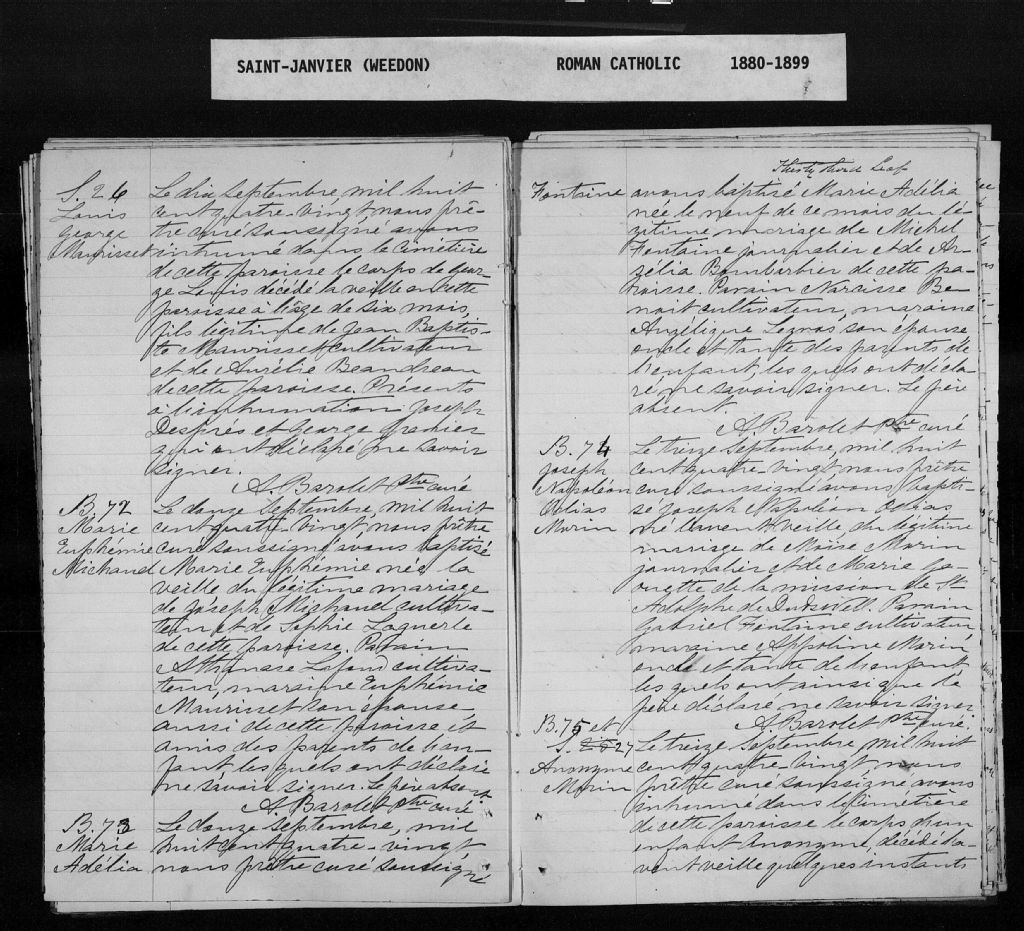 SAINT-JANVIER (WEEDON) ROMAN CATHOLIC 1880-1899
S. 26
Louis
George
Maurisset
Le dix Septembre, mil huit
cent quatre-vingt nous prê-
tre curé soussigné avons
inhumé dans le cimetière
de cette paroisse le corps de Geor-
ge Louis décédé la veille en cette
paroisse à l'âge de six mois,
fils légitime de Jean Baptis-
te Maurisset cultivateur
et de Aurélie Beaudreau
de cette paroisse. Présents
à l'inhumation Joseph
Després et George Grenier
qui ont déclaré ne savoir
signer.
A. Barolet ptre curé
B. 72
Marie
Euphémie
Michaud
Le douze Septembre, mil huit
cent quatre-vingt nous prêtre
curé soussigné avons baptisé
Marie Euphémie née la
veille du légitime mariage
de Joseph Michaud cultiva-
teur et de Sophie Laquerle
de cette paroisse. Parain
Athanase Lafond cultiva-
teur, maraine Euphémie
Maurisset son épouse
aussi de cette paroisse et
amis des parents de l'en-
fant les quels ont déclaré
ne savoir signer. Le père absent.
A. Barolet ptre curé
B. 73
Marie
Adélia
Le douze Septembre, mil
huit cent quatre-vingt
nous prêtre curé soussigné
Thirty third Leaf
Fontaine
avons baptisé Marie Adélia
née le neuf de ce mois du lé-
gitime mariage de Michel
Fontaine journalier et de Ar-
zélia Bombarbier de cette pa-
roisse. Parain Narcisse Be-
noit cultivateur, maraine
Angélique Legros son épouse
oncle et tante des parents de
l'enfant, les quels ont décla-
ré ne savoir signer. Le père
absent.
A. Barolet ptre curé
B. 74
Joseph
Napoléon
Osias
Morin
Le treize Septembre, mil huit
cent quatre-vingt nous prêtre
curé soussigné avons bapti-
sé Joseph Napoléon Osias
né l'avant veille du légitime
mariage de Moïse Morin
journalier et de Marie
de la mission de St
Adolphe de Dudswell. Parain
Gabriel Fontaine cultivateur
maraine Appoline Morin
oncle et tante de l'enfant
les quels ont ainsi que le
père déclaré ne savoir signer
A. Barolet ptre curé
B. 75 et
S. 27
Anonyme
Morin
Le treize Septembre, mil huit
cent quatre-vingt, nous
prêtre curé soussigné avons
inhumé dans le cimetière
de cette paroisse le corps d'un
enfant Anonyme, décédé l'a-
vant veille quelques instants